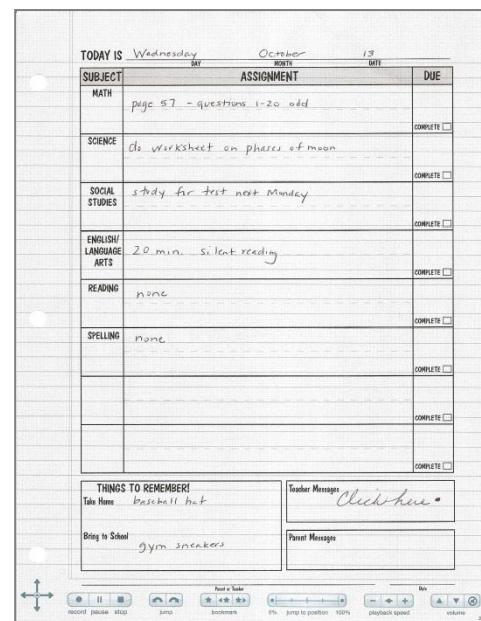 TODAY IS Wednesday October 13
DAY MONTH DATE
SUBJECT ASSIGNMENT DUE
MATH
page 57 - questions 1-20 odd
COMPLETE
SCIENCE
do worksheet on phases of moon
COMPLETE
SOCIAL STUDIES
study for test next Monday
COMPLETE
ENGLISH/
LANGUAGE
ARTS
20 min. silent reading
COMPLETE
READING
none
COMPLETE
SPELLING
none
COMPLETE
COMPLETE
COMPLETE
THINGS TO REMEMBER!
Take Home baseball hat
Bring to School
gym sneakers
Teacher Messages
Click here
Parent Messages
Parent or Teacher Date
record pause stop jump bookmark 0% jump to position 100% playback speed volume